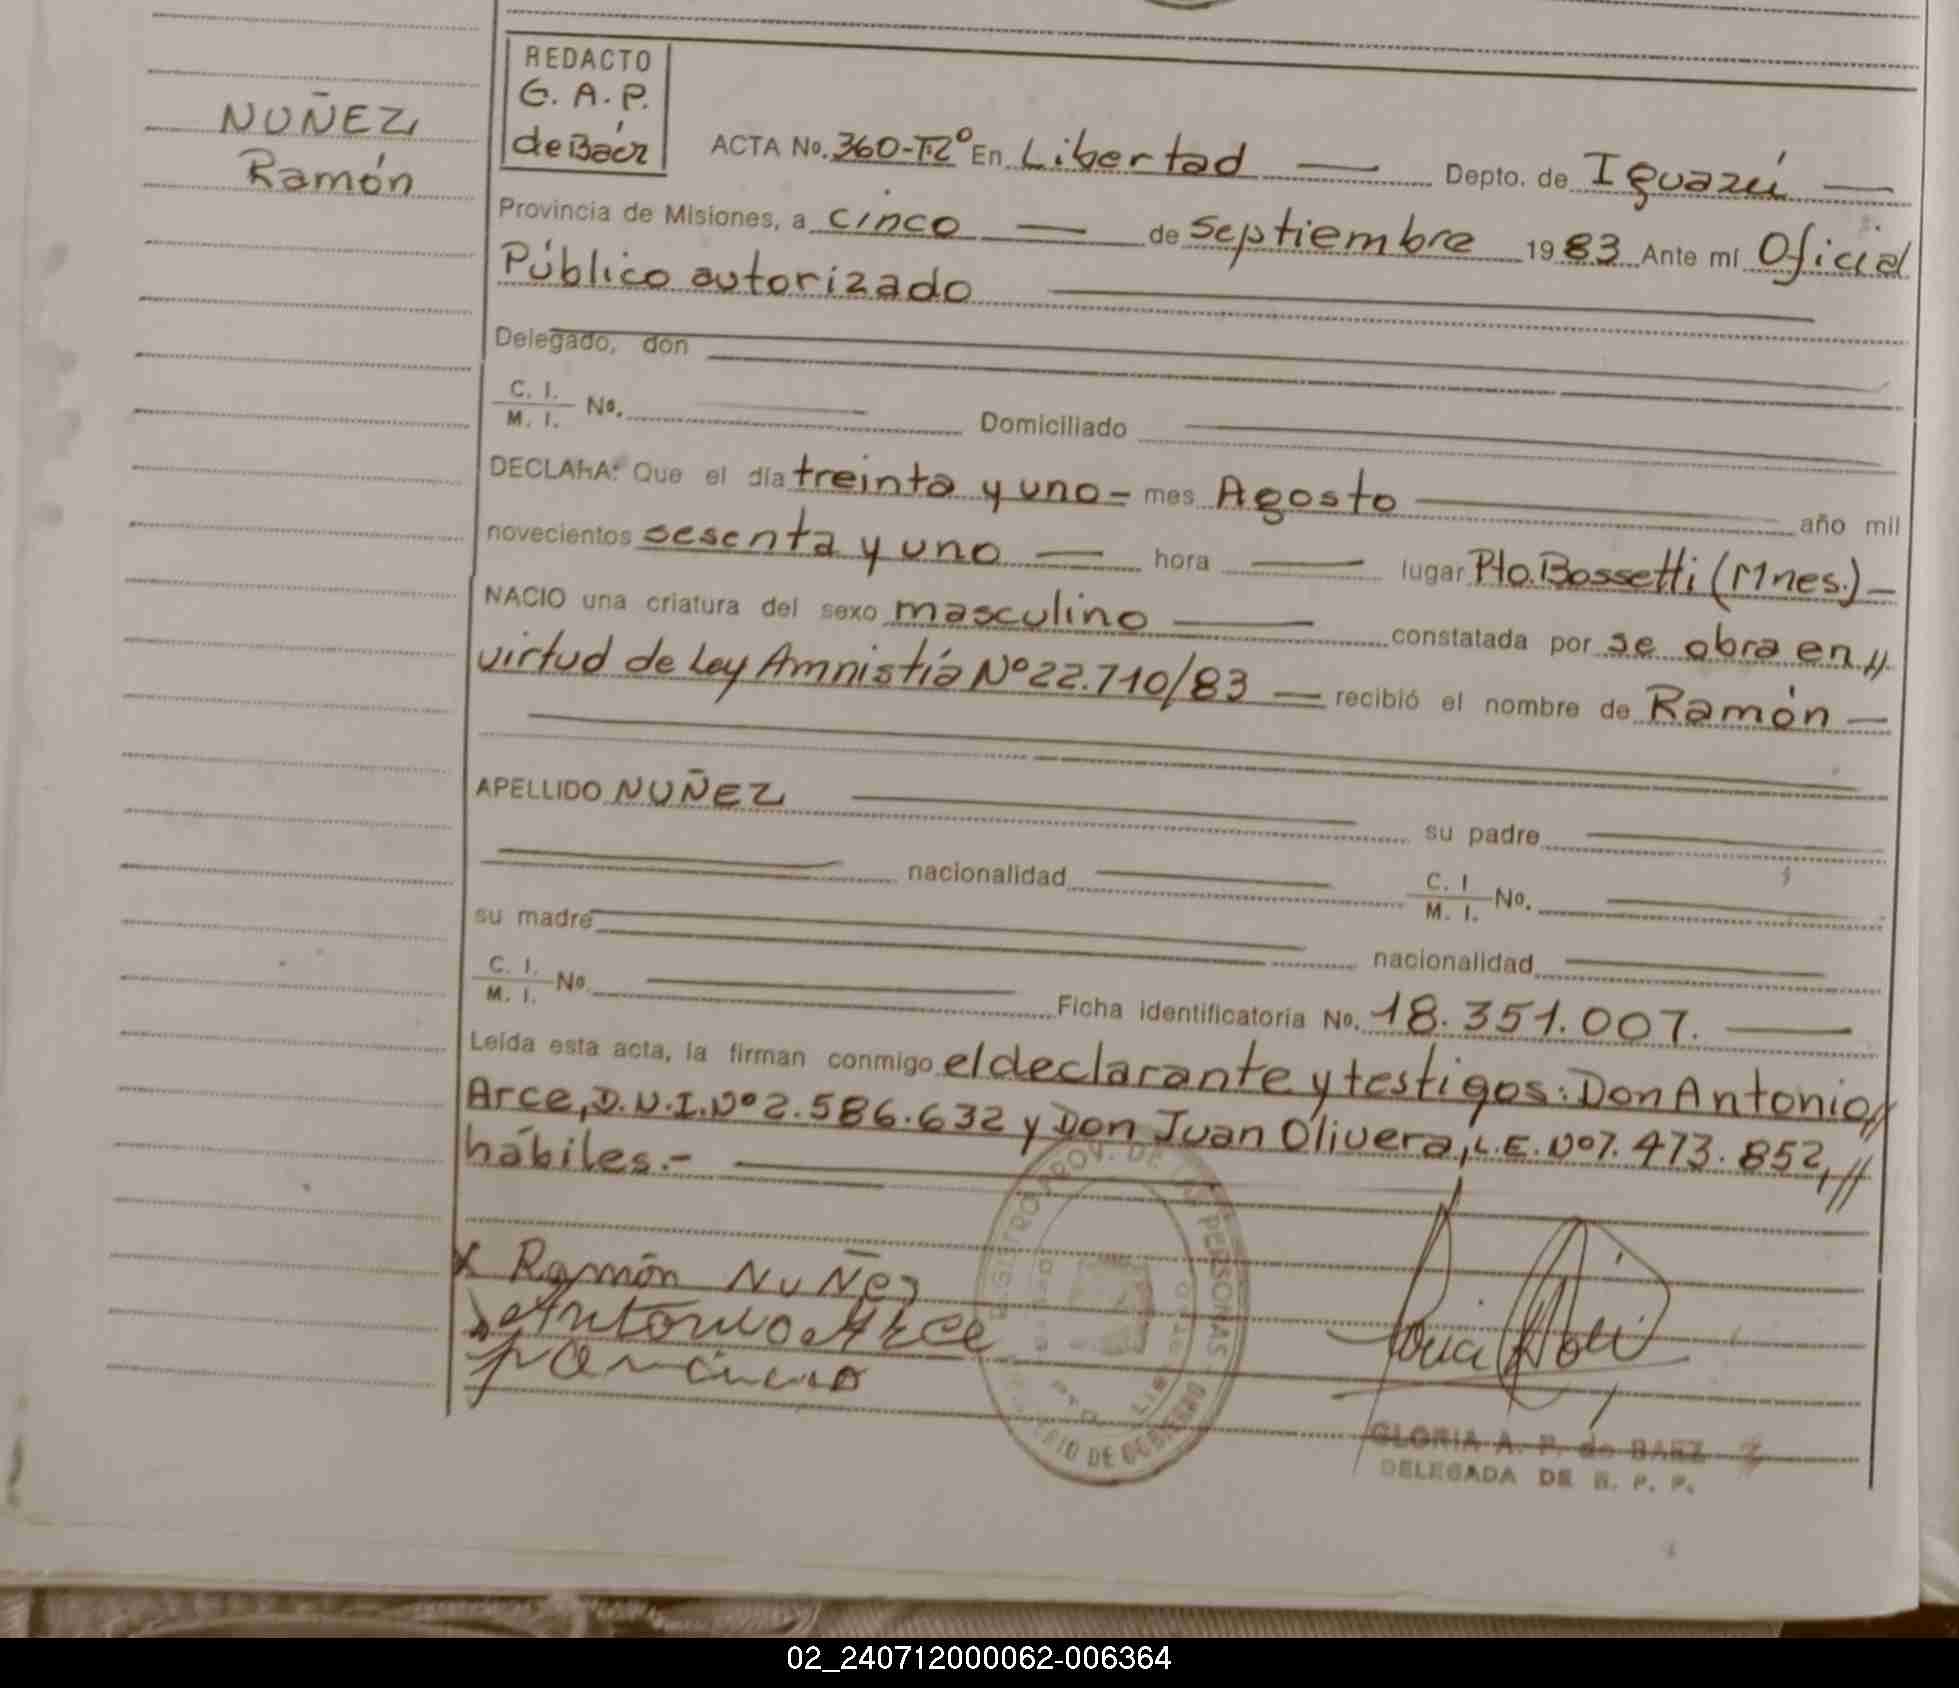 NUÑEZ
Ramón
REDACTO
G. A. P.
de Báez
ACTA No. 360-T.2º En Libertad Depto. de Iguazú
Provincia de Misiones, a cinco de septiembre 1983 Ante mí Oficial
Público autorizado
Delegado, don
C. I. / M. I. No. Domiciliado
DECLARA: Que el día treinta y uno = mes Agosto año mil
novecientos sesenta y uno hora lugar Pto. Bossetti (Mnes.)
NACIO una criatura del sexo masculino constatada por se obra en //
virtud de Ley Amnistía Nº 22.710/83 recibió el nombre de Ramón
APELLIDO NUÑEZ su padre
nacionalidad C. I / M. I. No.
su madre nacionalidad
C. I. / M. I. No Ficha identificatoria No. 18.351.007.
Leída esta acta, la firman conmigo el declarante y testigos: Don Antonio //
Arce, D.N.I. Nº 2.586.632 y Don Juan Olivera, L.E. Nº 7.473.852, //
hábiles.-
X Ramón NuÑez
Antonio Arce
REGISTRO PROV. DE LAS PERSONAS
MINISTERIO DE GOBIERNO
GLORIA A. P. de BAEZ
DELEGADA DE R. P. P.
02_240712000062-006364